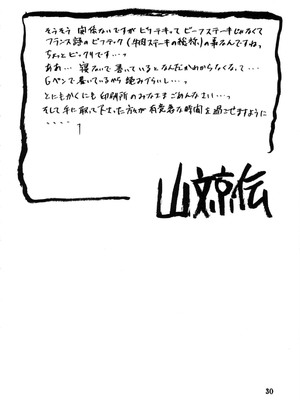 そうそう 関係ないですが ビフテキって ビーフステーキじゃなくて
フランス語の ビフテック (牛肉ステーキの総称)の事なんですねっ
ちょっと ビックリです…っ
ああ… 寝ないで 書いていると なんだかわからなくなって…
Gペンで 書いているから 読みづらいし…っ
とにもかくにも 印刷所の みなさま ごめんなさい…っ
そして 手に取って下さった方々が 有意義な時間を過ごせますように
・・・・っ
山文京伝
30